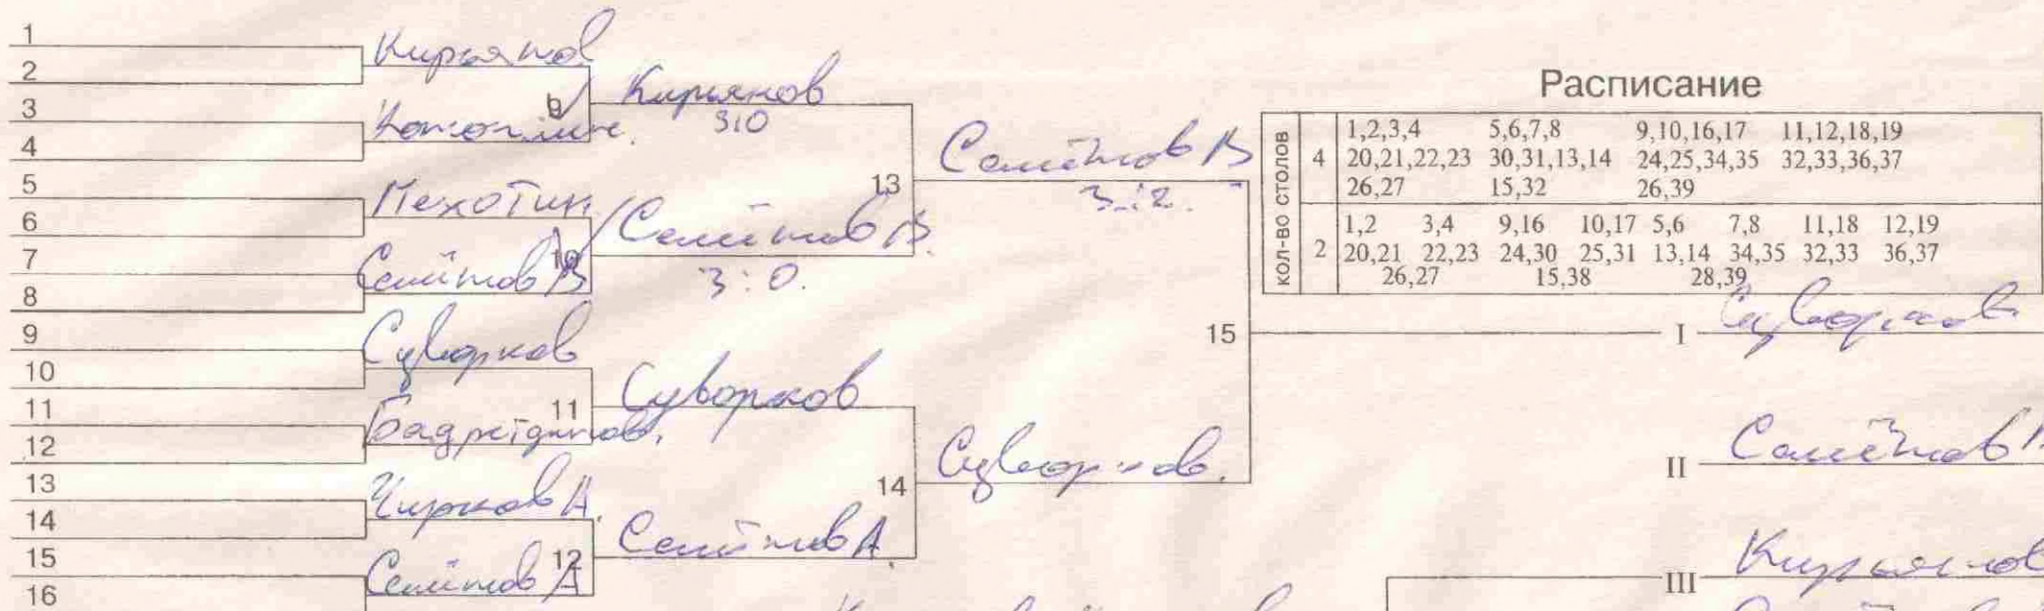 1
2
3
4
5
6
7
8
9
10
11
12
13
14
15
16
Кирьянов
Пехотин
Семёнов В
Суворков
Бадретдинов.
Чирков А.
Семёнов А
9
10
11
12
Кирьянов
3:0
Семёнов В.
3:0.
Суворков
Семёнов А
13
14
Семёнов В
3:2.
Суворков.
15
Расписание
КОЛ-ВО СТОЛОВ
4
1,2,3,4 5,6,7,8 9,10,16,17 11,12,18,19
20,21,22,23 30,31,13,14 24,25,34,35 32,33,36,37
26,27 15,32 26,39
2
1,2 3,4 9,16 10,17 5,6 7,8 11,18 12,19
20,21 22,23 24,30 25,31 13,14 34,35 32,33 36,37
26,27 15,38 28,39
I Суворков
II Семёнов В
III Кирьянов